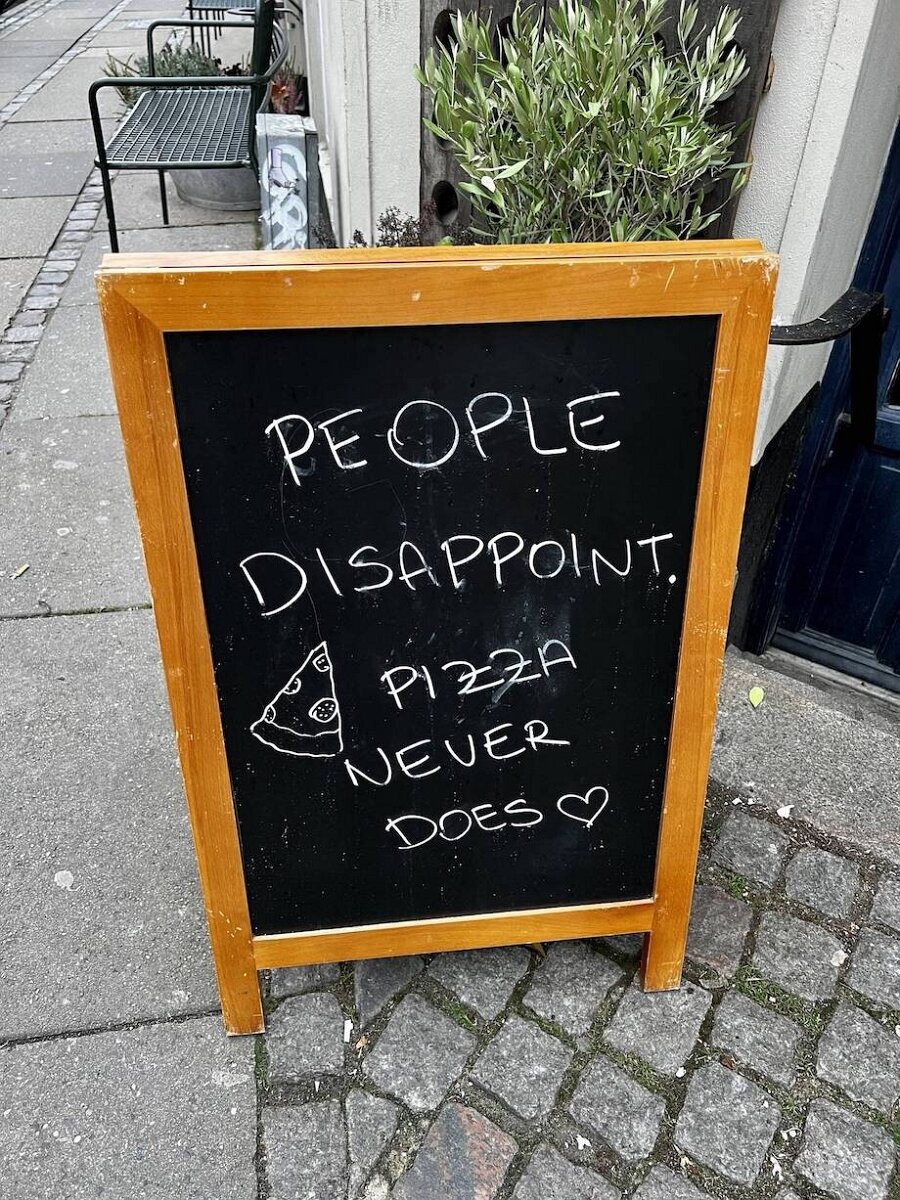 PEOPLE
DISAPPOINT.
PIZZA
NEVER
DOES ♡